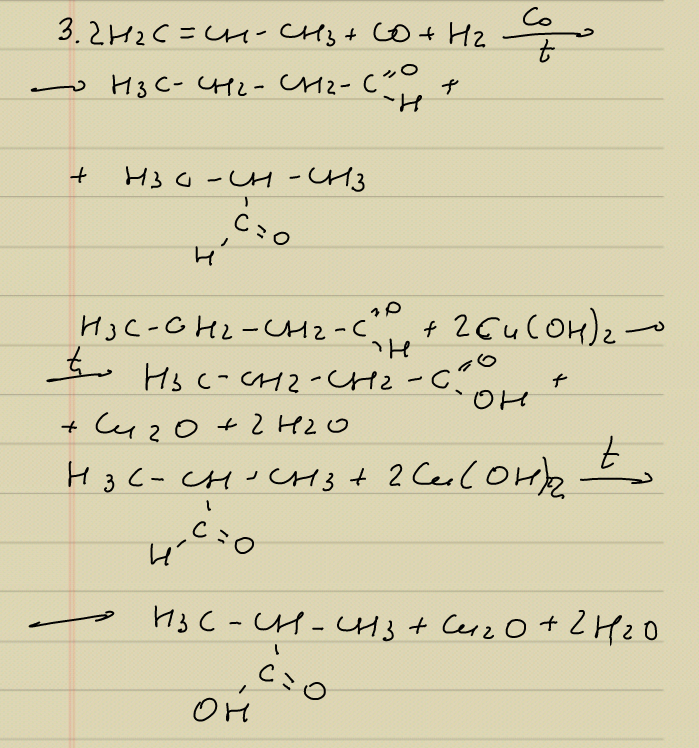 3. 2H2C=CH-CH3+CO+H2 Co t →
→ H3C-CH2-CH2-C=O -H +
+ H3C-CH-CH3
C=O
H
H3C-CH2-CH2-C=O -H + 2Cu(OH)2 →
t → H3C-CH2-CH2-C=O -OH +
+ Cu2O + 2H2O
H3C-CH-CH3 + 2Cu(OH)2 t →
C=O
H
→ H3C-CH-CH3 + Cu2O + 2H2O
C=O
OH